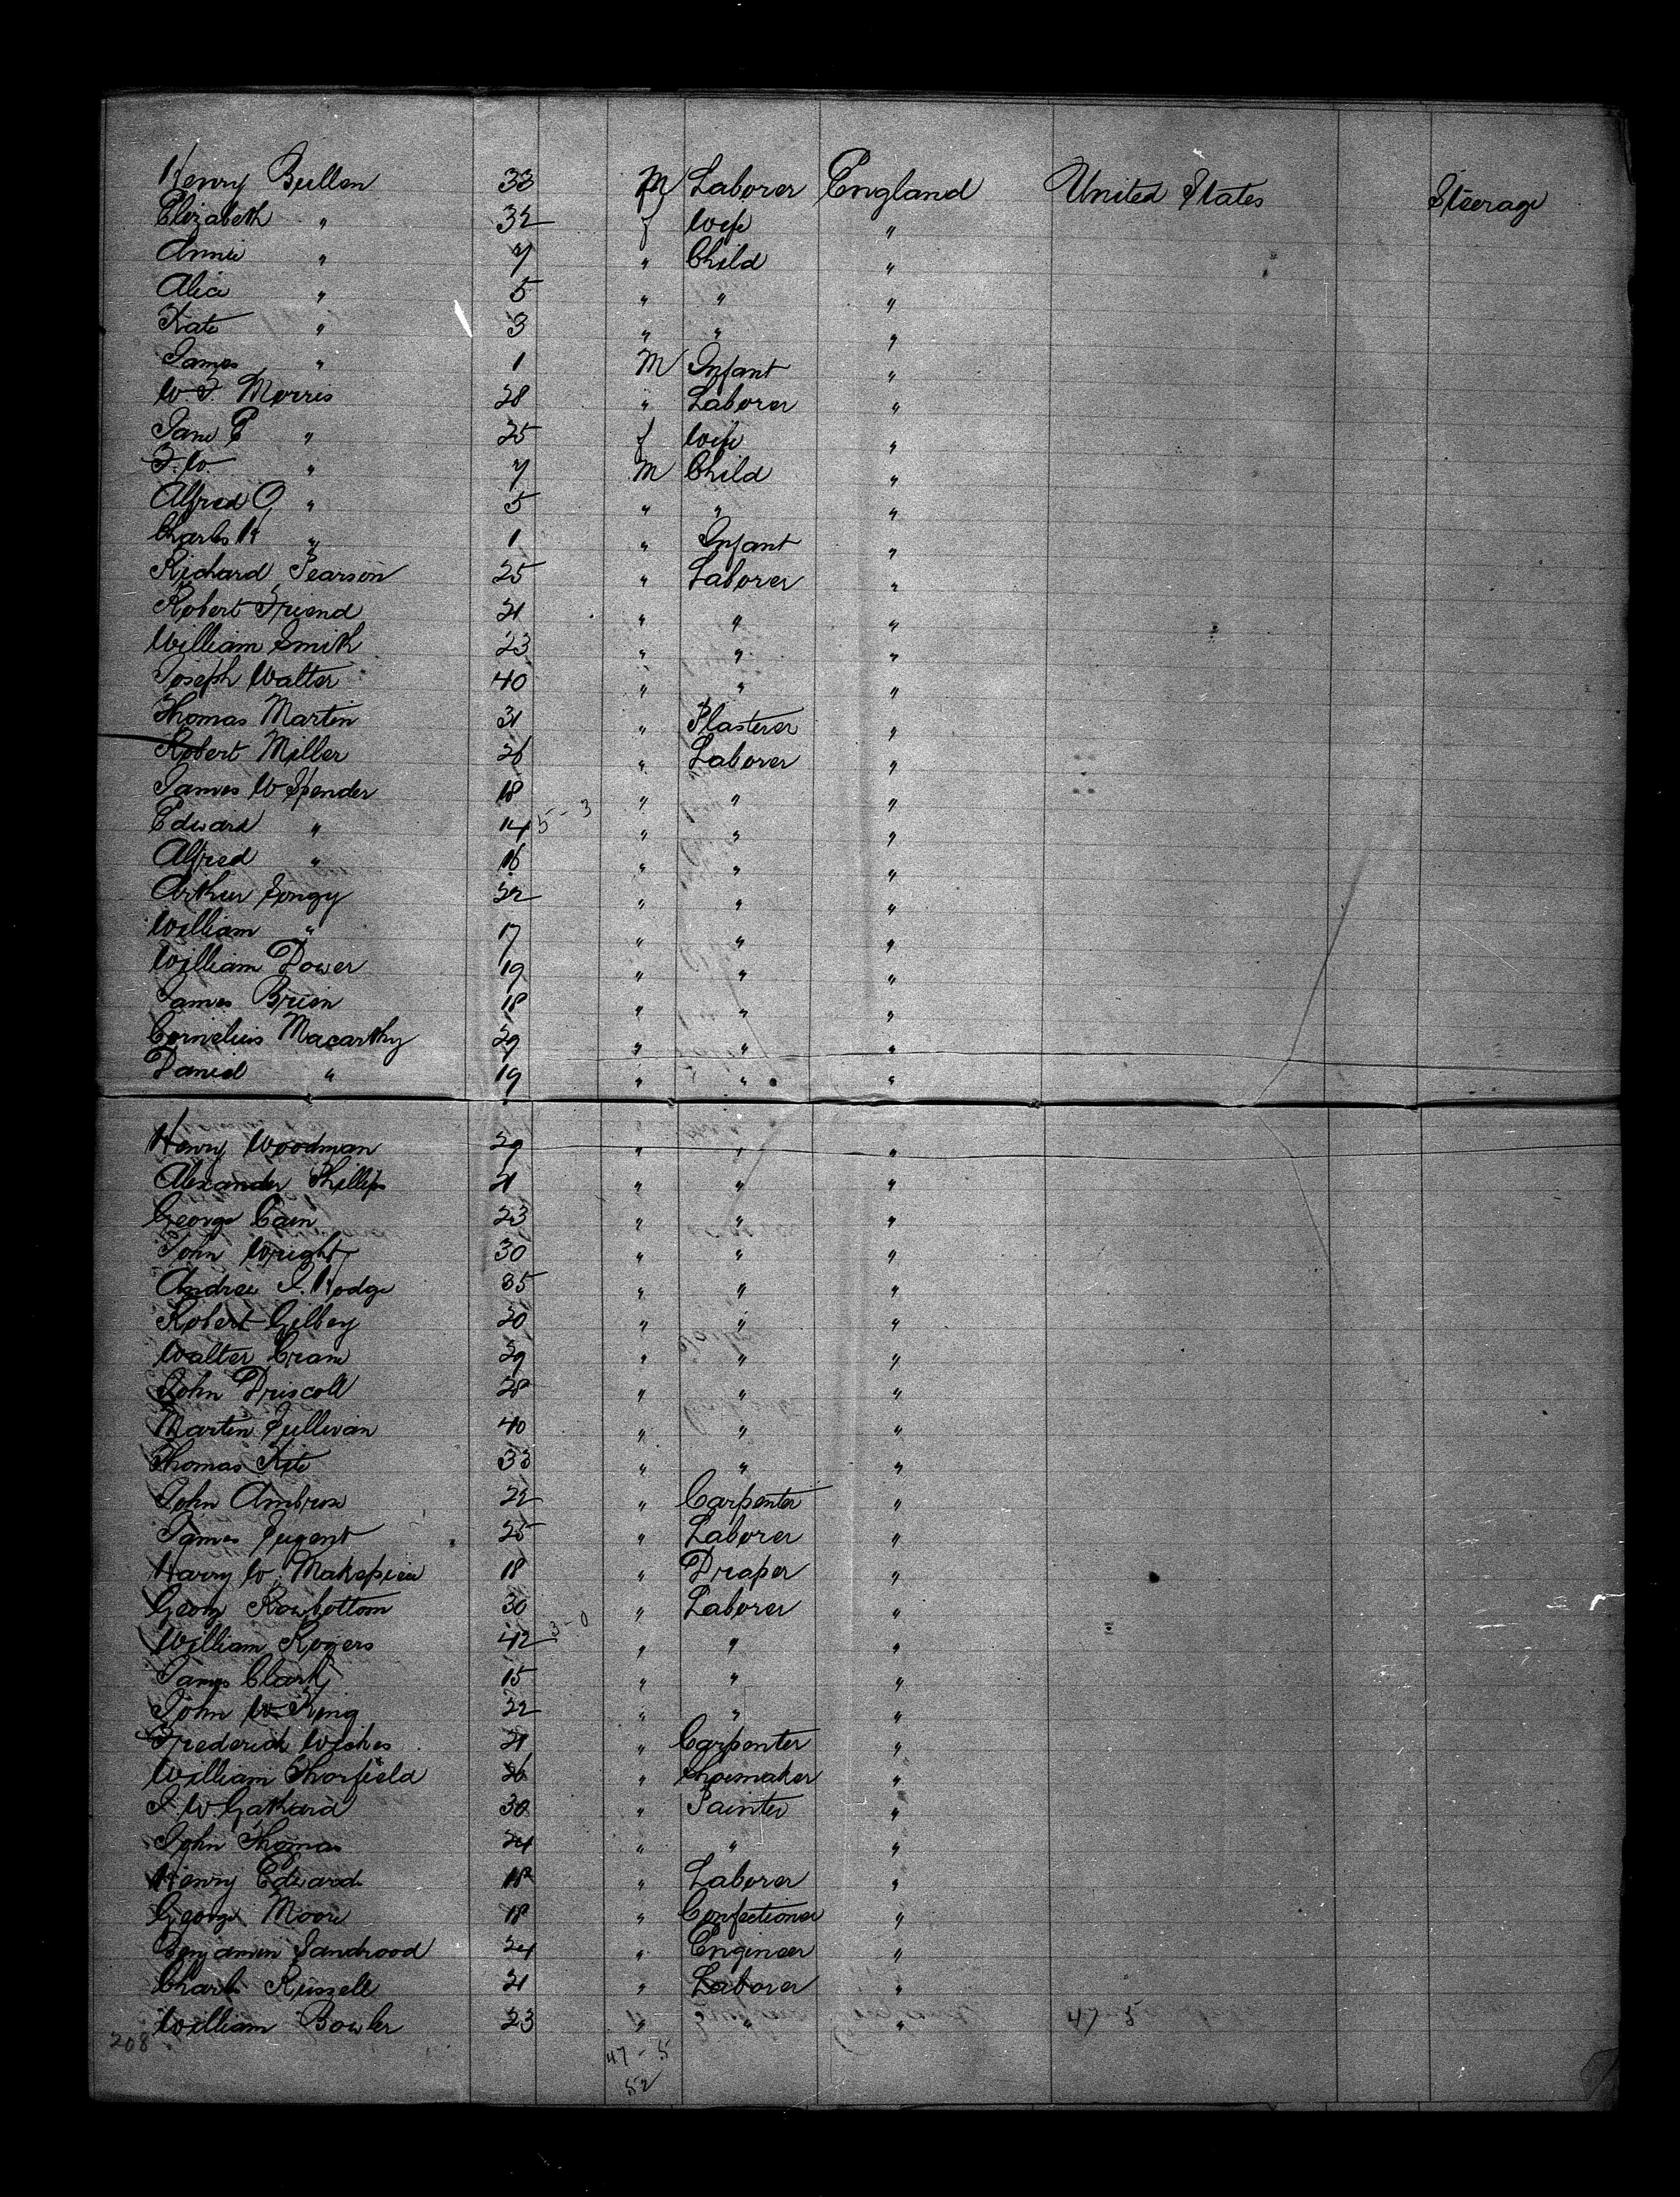 Henry Bullen 33 M Laborer England United States Steerage
Elizabeth " 32 f Wife "
Annie " 7 " Child "
Alice " 5 " " "
Kate " 3 " " "
James " 1 M Infant "
W. J. Morris 28 " Laborer "
Jane E " 25 f Wife "
F. W. " 7 M Child "
Alfred G " 5 " " "
Charles H " 1 " Infant "
Richard Pearson 25 " Laborer "
Robert Friend 21 " " "
William Smith 23 " " "
Joseph Walter 40 " " "
Thomas Martin 31 " Plasterer "
Robert Miller 26 " Laborer "
James W Spender 18 " " "
Edward " 14 5-3 " " "
Alfred " 16 " " "
Arthur 22 " " "
William " 17 " " "
William Dower 19 " " "
James Brien 18 " " "
Cornelius Macarthy 29 " " "
Daniel " 19 " " "
Henry Woodman 29 " " "
Alexander Phillips 21 " " "
George Cain 23 " " "
John Wright 30 " " "
Andrew J. Hodge 35 " " "
Robert Gilbey 20 " " "
Walter Cram 29 " " "
John Driscoll 28 " " "
Martin Sullivan 40 " " "
Thomas Kite 33 " " "
John Ambrose 22 " Carpenter "
James 25 " Laborer "
Harry W. Makepiece 18 " Draper "
Georg Rowbottom 30 " Laborer "
William Rogers 42 3-0 " " "
James Clark 15 " " "
John W King 22 " " "
Frederick Wickes 21 " Carpenter "
William Thorfield 26 " Shoemaker "
J. W. Gathard 30 " Painter "
John Thomas 24 " " "
Henry Edwards 18 " Laborer "
George Moore 18 " Confectioner "
Benjamin Sandrood 24 " Engineer "
Charles Russell 21 " Laborer "
William Bowler 23 " " " 47 5
208
47-5
52